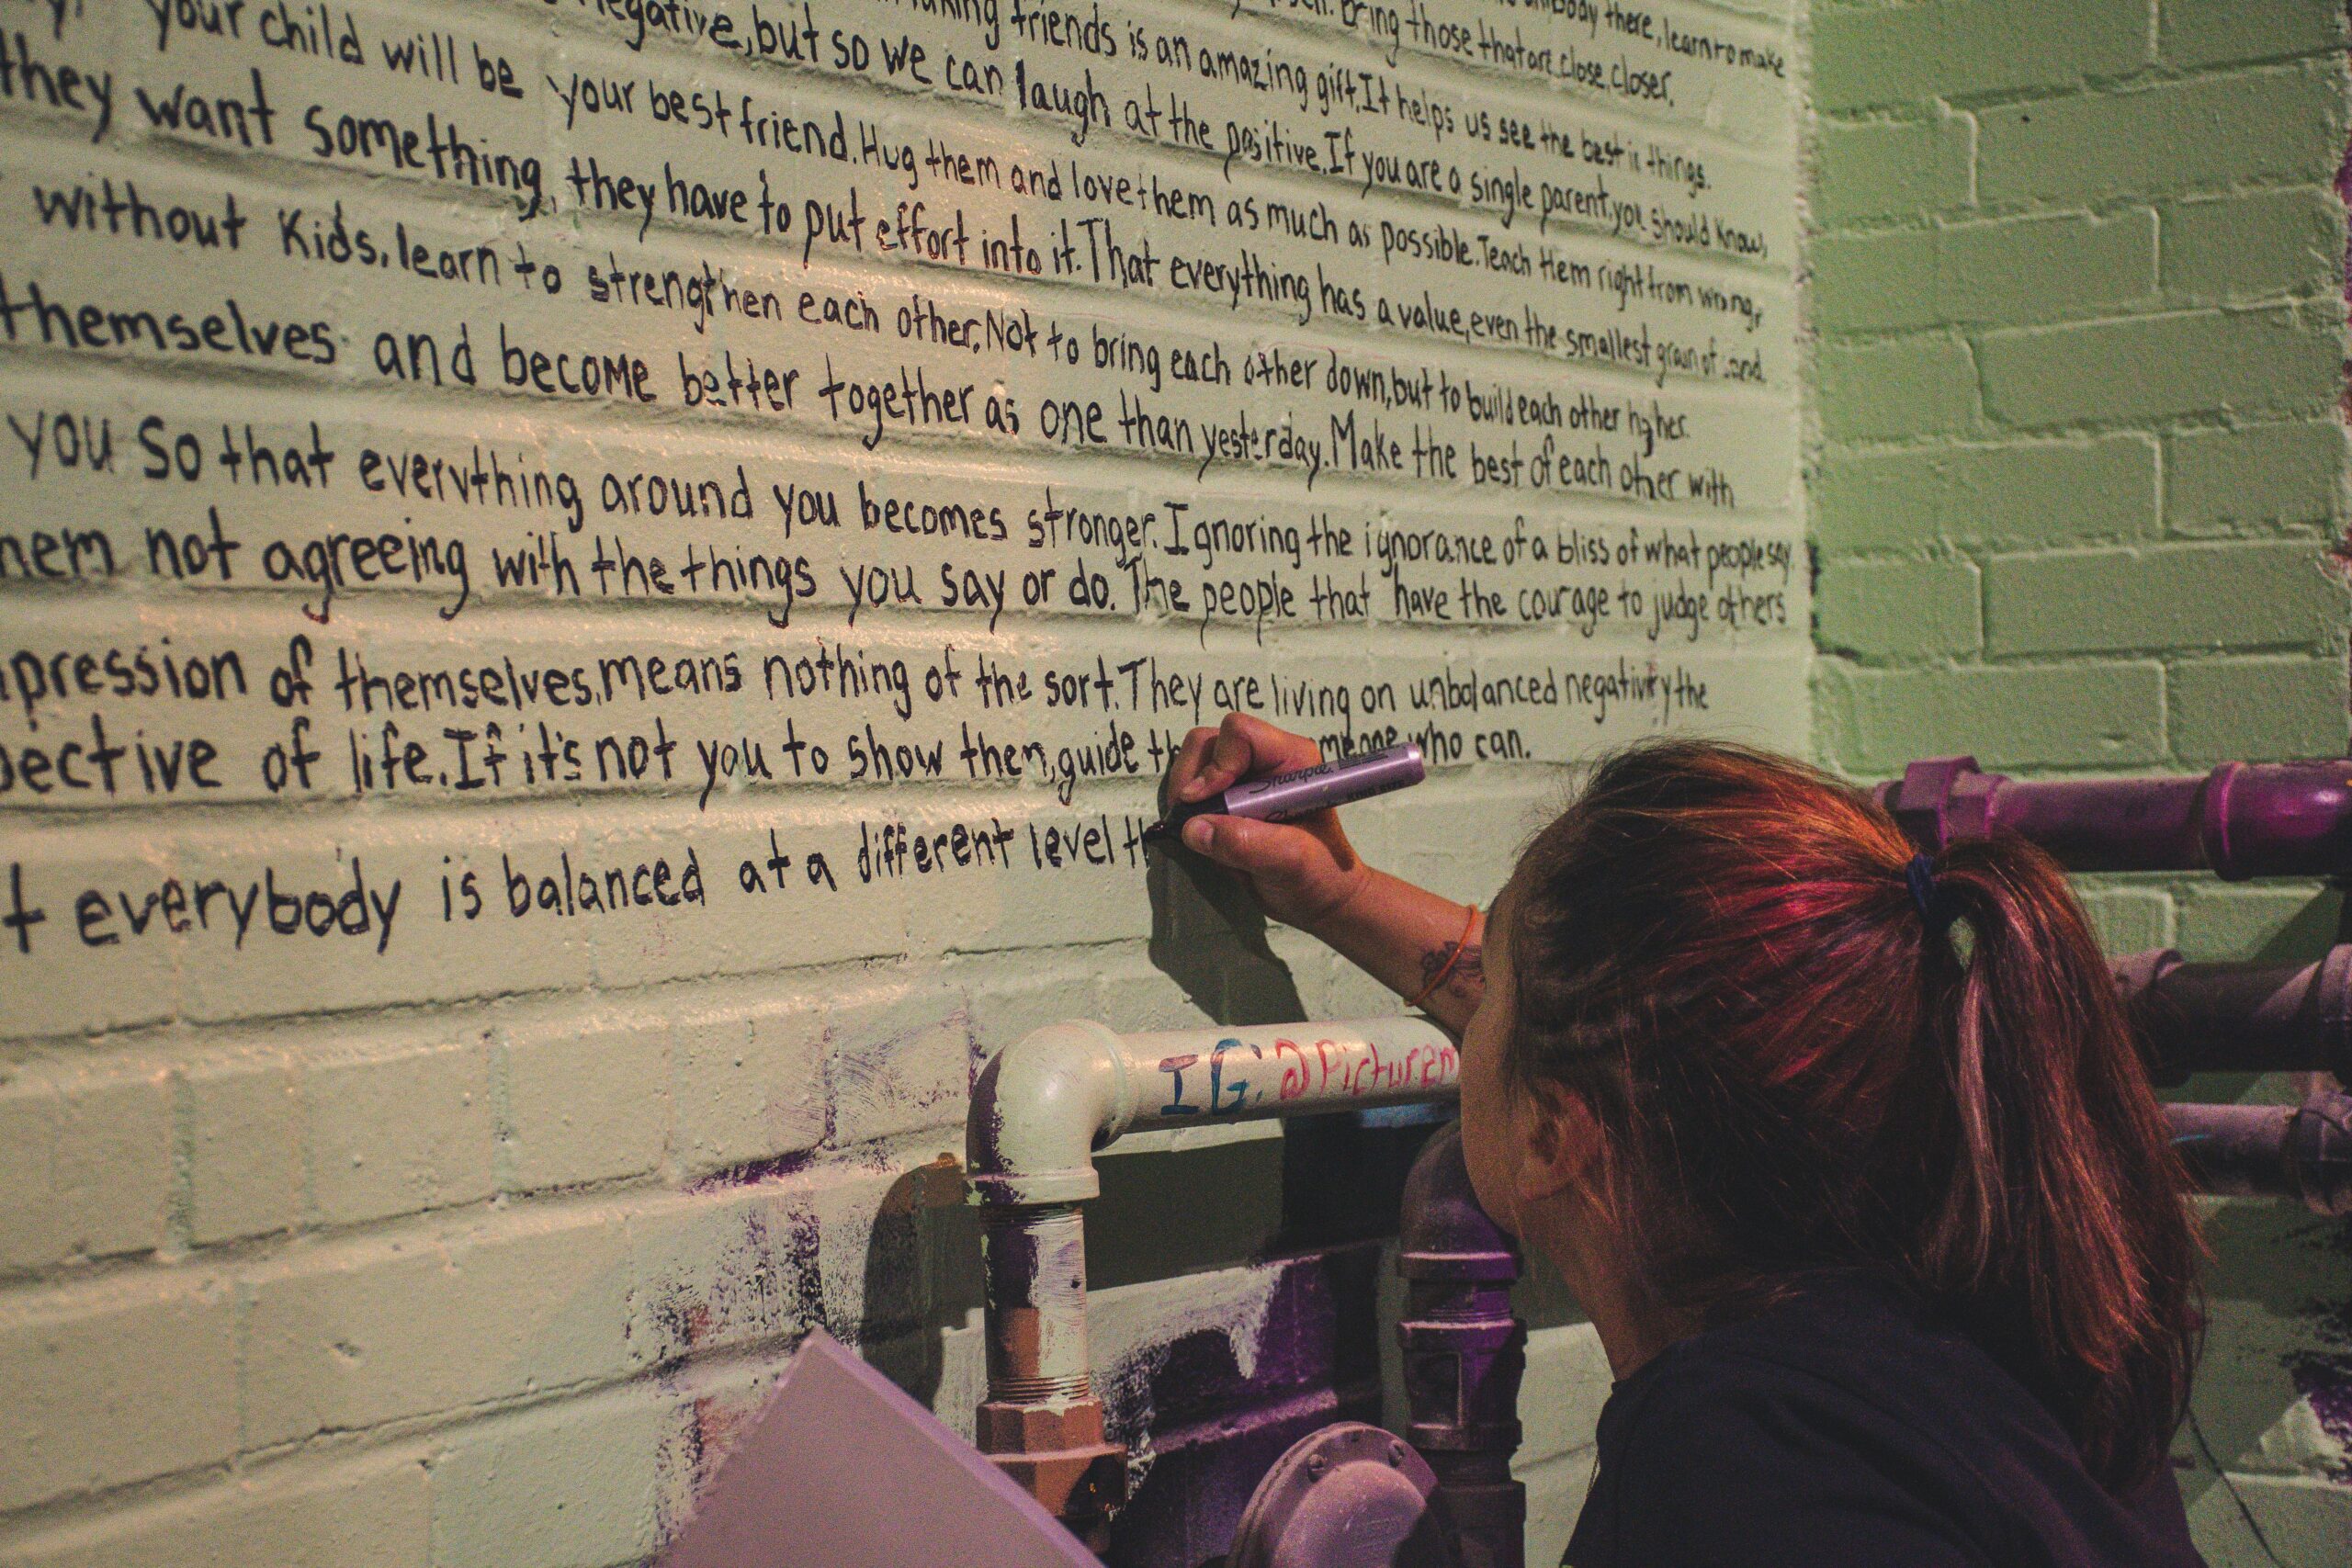 there, learn to make
Bring those that are close, closer.
friends is an amazing gift. It helps us see the best in things.
negative, but so we can laugh at the positive. If you are a single parent, you should know,
your child will be your best friend. Hug them and love them as much as possible. Teach them right from wrong,
they want something, they have to put effort into it. That everything has a value, even the smallest grain of sand.
without kids, learn to strengthen each other. Not to bring each other down, but to build each other higher.
themselves and become better together as one than yesterday. Make the best of each other with
you so that everything around you becomes stronger. Ignoring the ignorance of a bliss of what people say.
not agreeing with the things you say or do. The people that have the courage to judge others
pression of themselves, means nothing of the sort. They are living on unbalanced negativity the
pective of life. If it's not you to show then, guide th meone who can.
t everybody is balanced at a different level th
IG: @Picturem
Sharpie